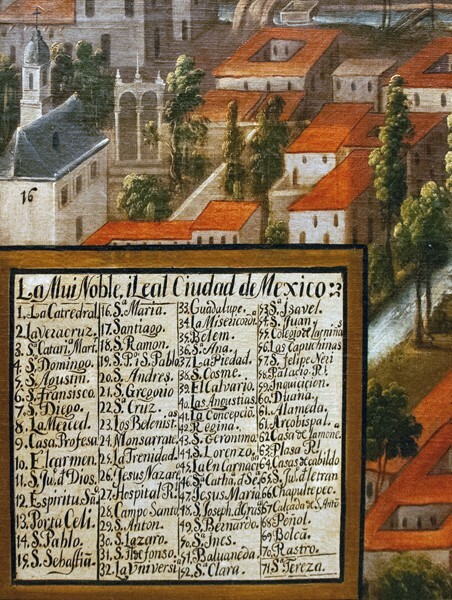 16
La Mui Noble, i Leal Ciudad de Mexico:
1. La Catredal
2. la Veracruz.
3. Sta Catari. Mart.
4. S. Domingo.
5. S. Agustin.
6. S. Fransisco.
7. S. Diego.
8. La Merced.
9. Casa Profesa
10. El carmen.
11. S. Ju. d Dios.
12. Espiritu Sto
13. Porta Celi.
14. S. Pablo.
15. S. Sebastiā.
16. Sta Maria.
17. Santiago.
18. S. Ramon.
19. S. P. i S. Pablo
20. S. Andres.
21. S. Gregorio
22. S. Cruz.
23. Los Belenist. as
24. Monsarrate.
25. la Trenidad.
26. Jesus Nazare.
27. Hospital R.
28. Campo Santo
29. S. Anton.
30. S. Lazaro.
31. S. Ildefonso.
32. La Universi
33. Guadalupe.
34. La Misericor.
35. Belem.
36. S. Ana.
37. La Piedad.
38. S. Cosme.
39. El Calvario.
40. Las Angustias.
41. La Concepciō.
42. Regina.
43. S. Geronimo.
44. S. Lorenzo.
45. La Encarnac
46. Sta Catha. d Se.
47. Jesus Maria.
48. S. Joseph. d Gras
49. S. Bernardo.
50. Sta Ines.
51. Balvaneda.
52. Sta Clara.
53. Sta Izavel.
54. S. Juan.
55. Colegio de las niñas
56. Las Capuchinas
57. S. Felipe Neri
58. Palacio R.
59. Inquicicion.
60. Duana.
61. Alameda.
Arcobispal.
62. Casa de
63. Plasa R.
64. Casas de cabildo
65. S. Ju. d Letran
66. Chapultepec.
67. Calzada de S. Antō
68. Peñol.
69. Bolca.
70. Rastro.
71. Sta Tereza.